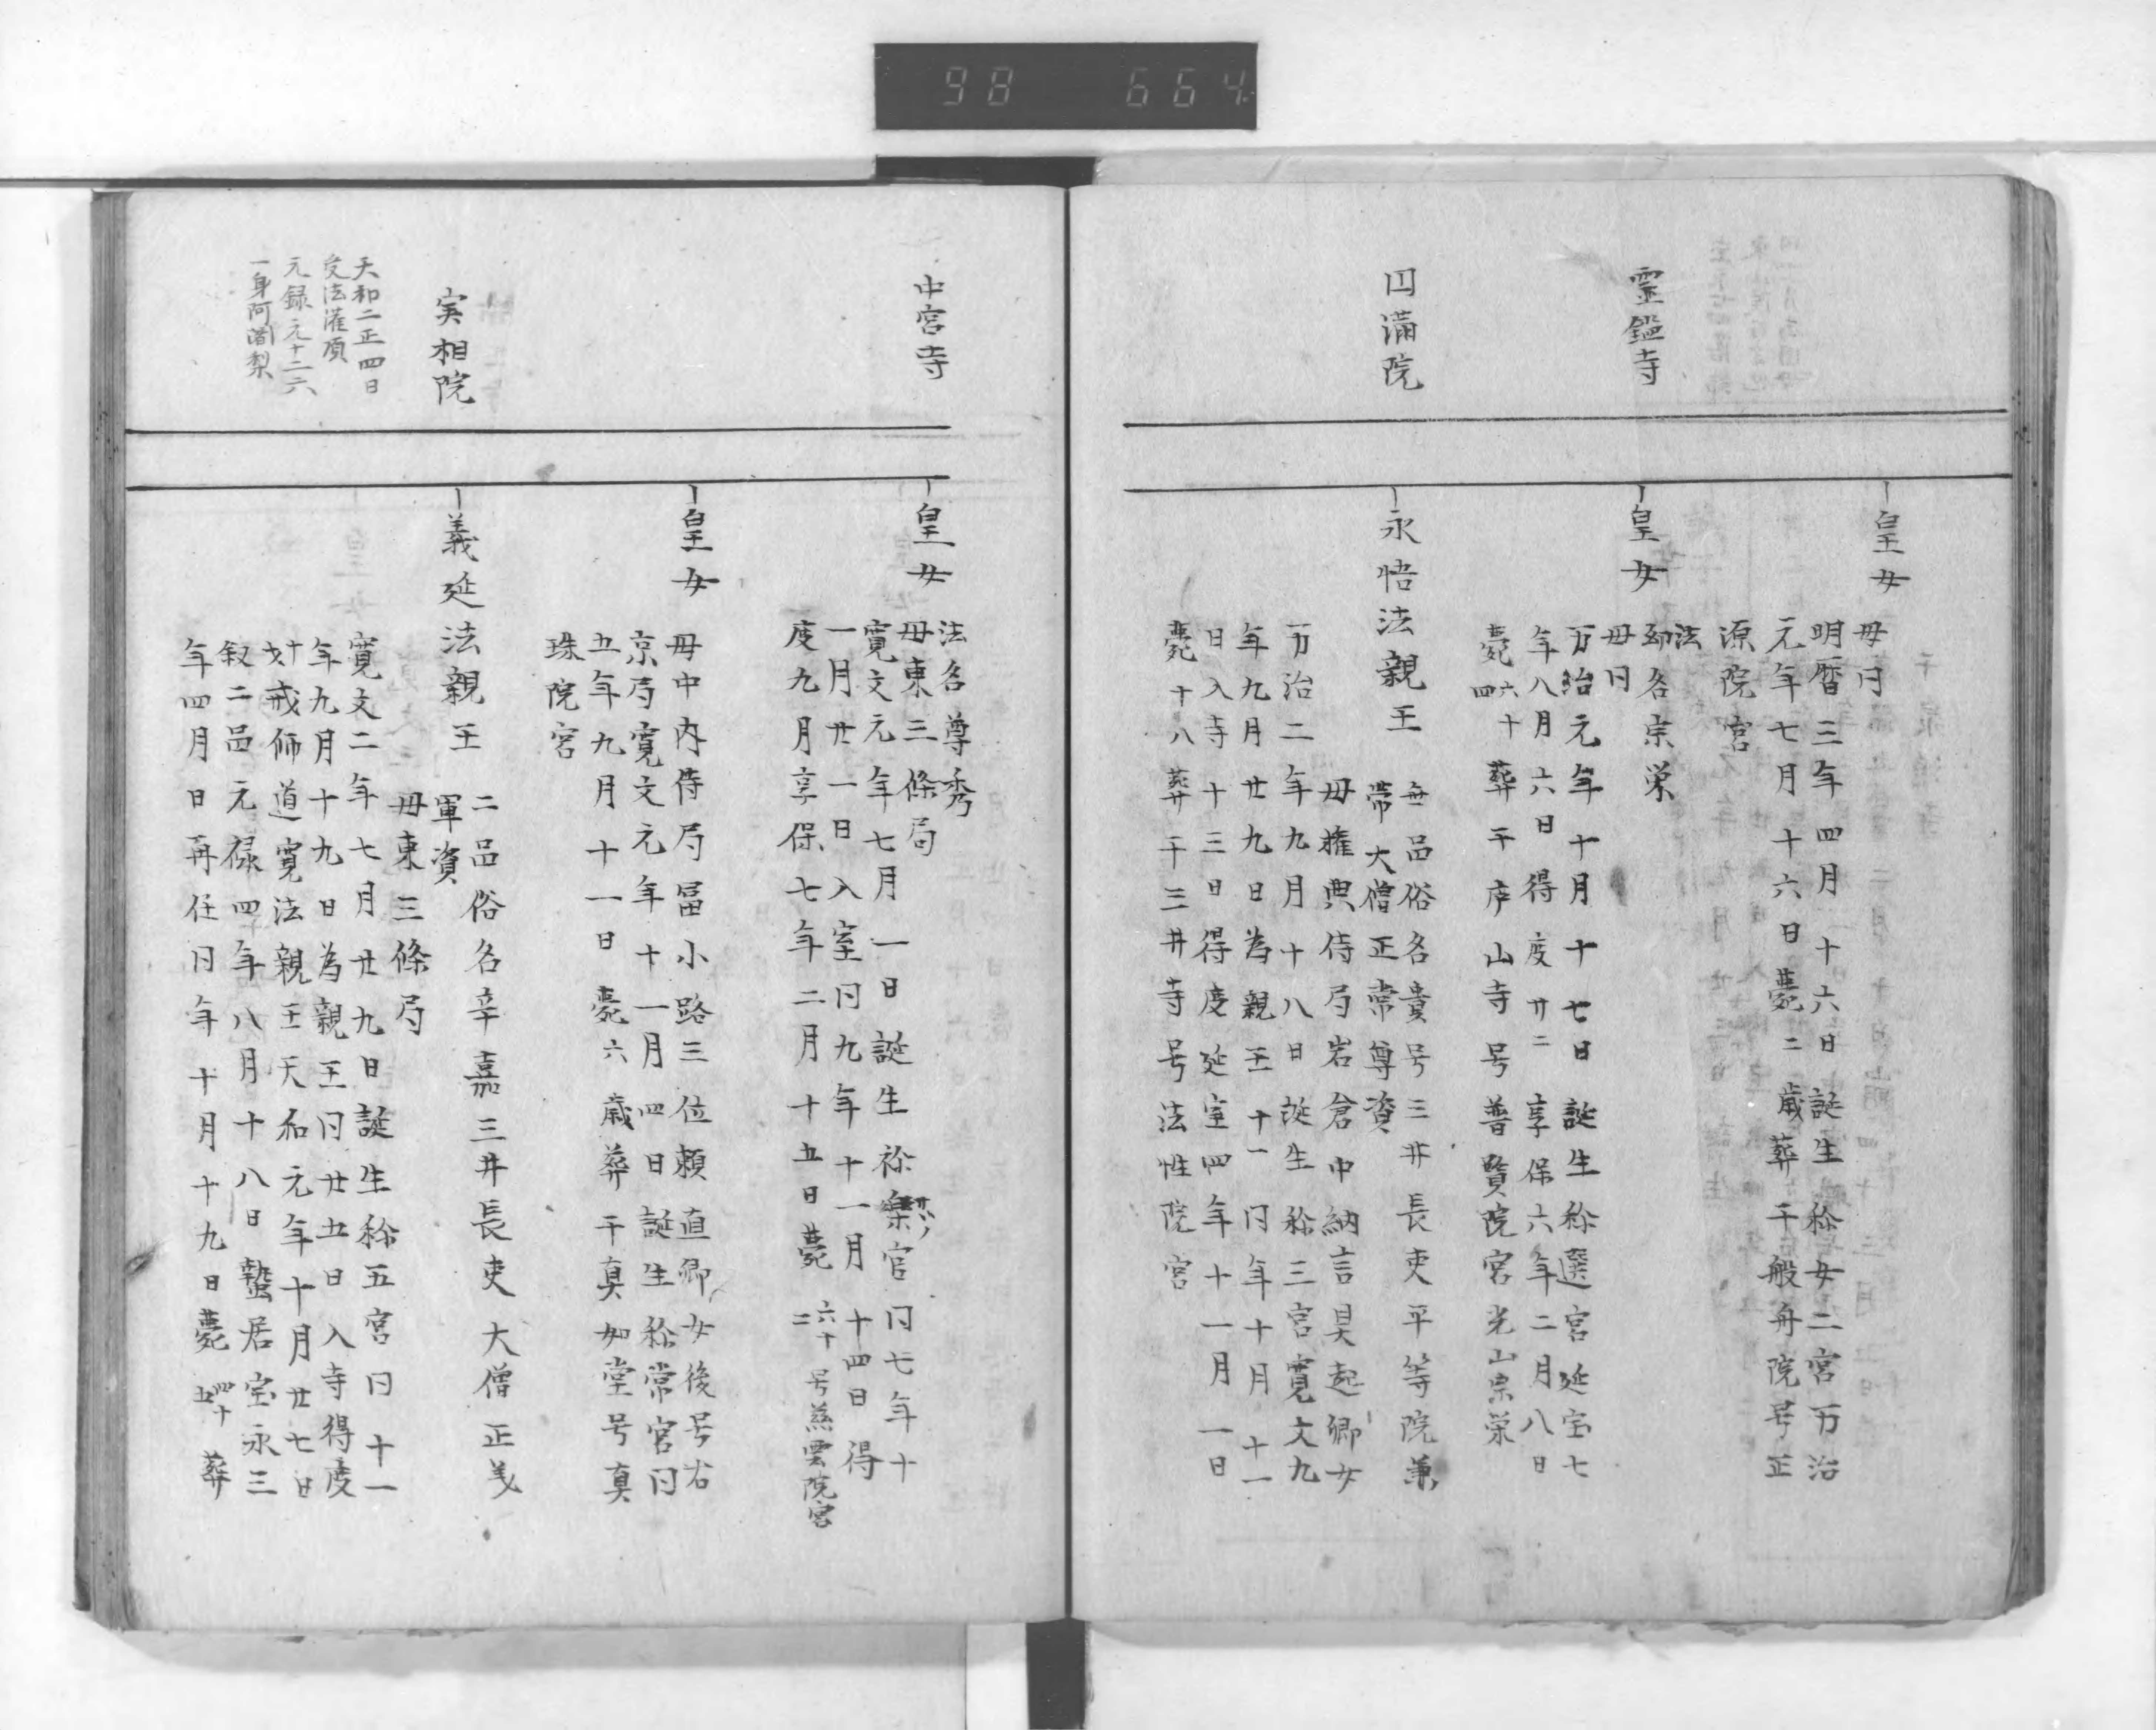 98 664
皇女
母同
明暦三年四月十六日誕生称女二宮万治
元年七月十六日薨二歳葬于般舟院号正
源院宮
霊鑑寺
皇女
法
名宗栄
母同
万治元年十月十七日誕生称選宮延宝七
年八月六日得度廿二享保六年二月八日
薨六十四葬于庐山寺号普賢院宮光山宗栄
円満院
永悟法親王
無品俗名貴号三井長吏平等院兼
常大僧正常尊資
母権典侍局岩倉中納言具起卿女
万治二年九月十八日誕生称三宮寛文九
年九月廿九日為親王十一同年十月十一
日入寺十三日得度延宝四年十一月一日
薨十八葬于三井寺号法性院宮
中宮寺
皇女
法名尊秀
母東三條局
寛文元年七月一日誕生称楽宮同七年十
一月廿一日入室同九年十一月十四日得
度九月享保七年二月十五日薨六十二号慈雲院宮
皇女
母中内侍局冨小路三位頼直卿女後号右
京局寛文元年十一月四日誕生称常宮同
五年九月十一日薨六歳葬于真如堂号真
珠院宮
実相院
義延法親王
二品俗名幸嘉三井長吏大僧正义
軍資
母東三條局
寛文二年七月廿九日誕生称五宮同十一
年九月十九日為親王同廿五日入寺得度
戒师道寛法親王天和元年十月廿七日
叙二品元禄四年八月十八日蟄居宝永三
年四月日再任同年十月十九日薨四十五葬
天和二正四日
受法灌頂
元録元十二六
一身阿闍梨